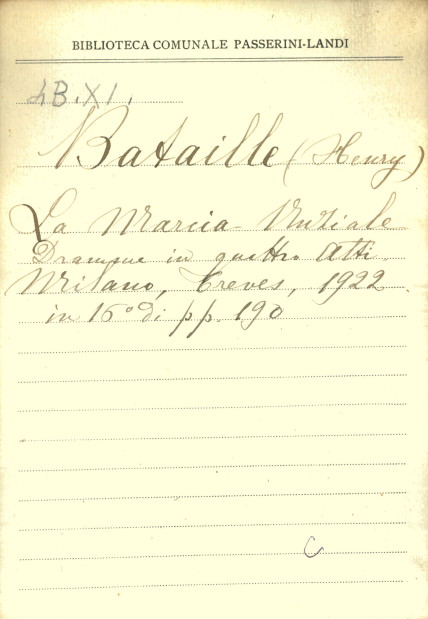 BIBLIOTECA COMUNALE PASSERINI-LANDI
4B.XI.
Bataille (Henry)
La Marcia Nuziale
Dramma in quattro Atti.
Milano, Treves, 1922.
in 16º di pp. 190
C